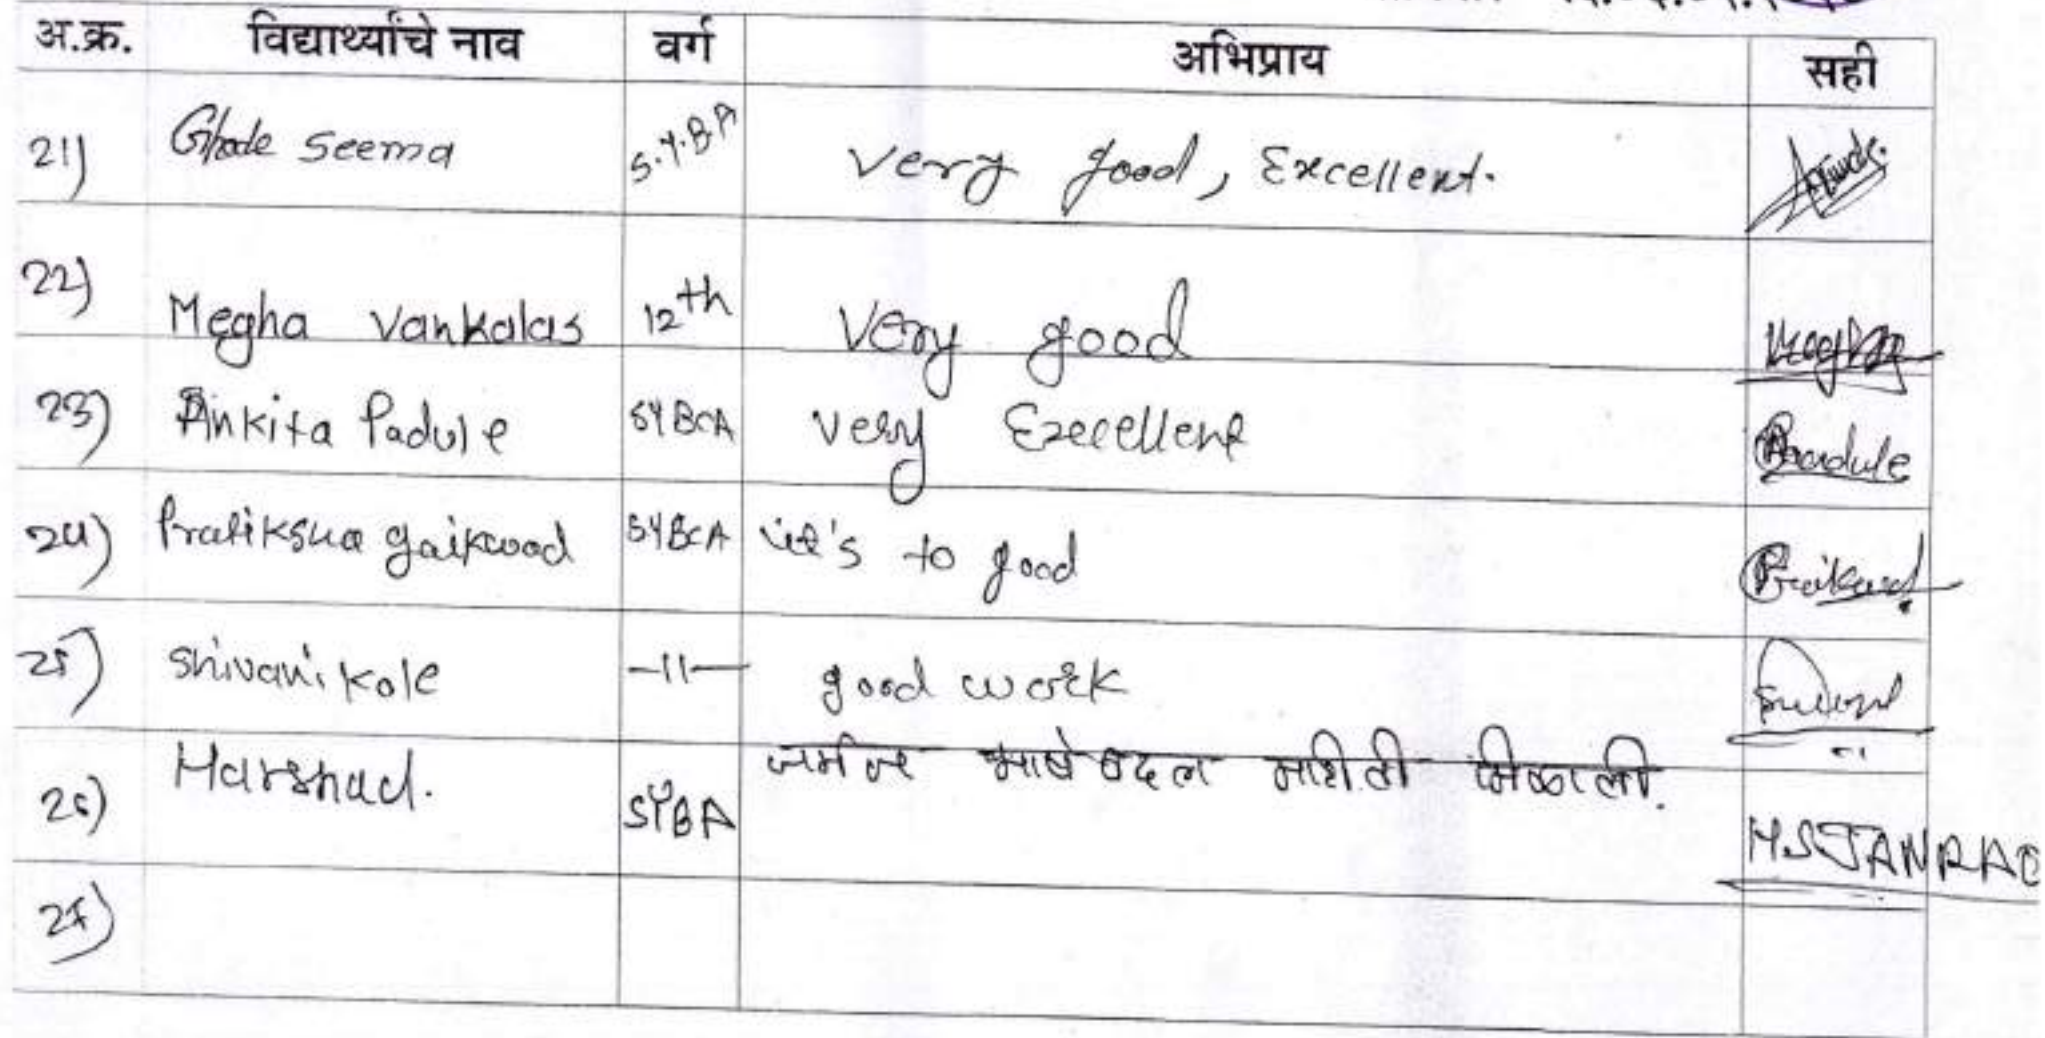 अ.क्र. विद्यार्थ्यांचे नाव वर्ग अभिप्राय सही
21) Ghode Seema S.Y.BA Very good, Excellent.
22) Megha Vankalas 12th Very good Megha
23) Ankita Padule SYBCA Very Execellent Padule
24) Pratiksha gaikwad SYBCA it's to good Gaikwad
25) Shivani kole -11- good work
26) Harshad. SYBA जर्मन भाषे बद्दल माहिती मिळाली. H.S JANRAO
27)